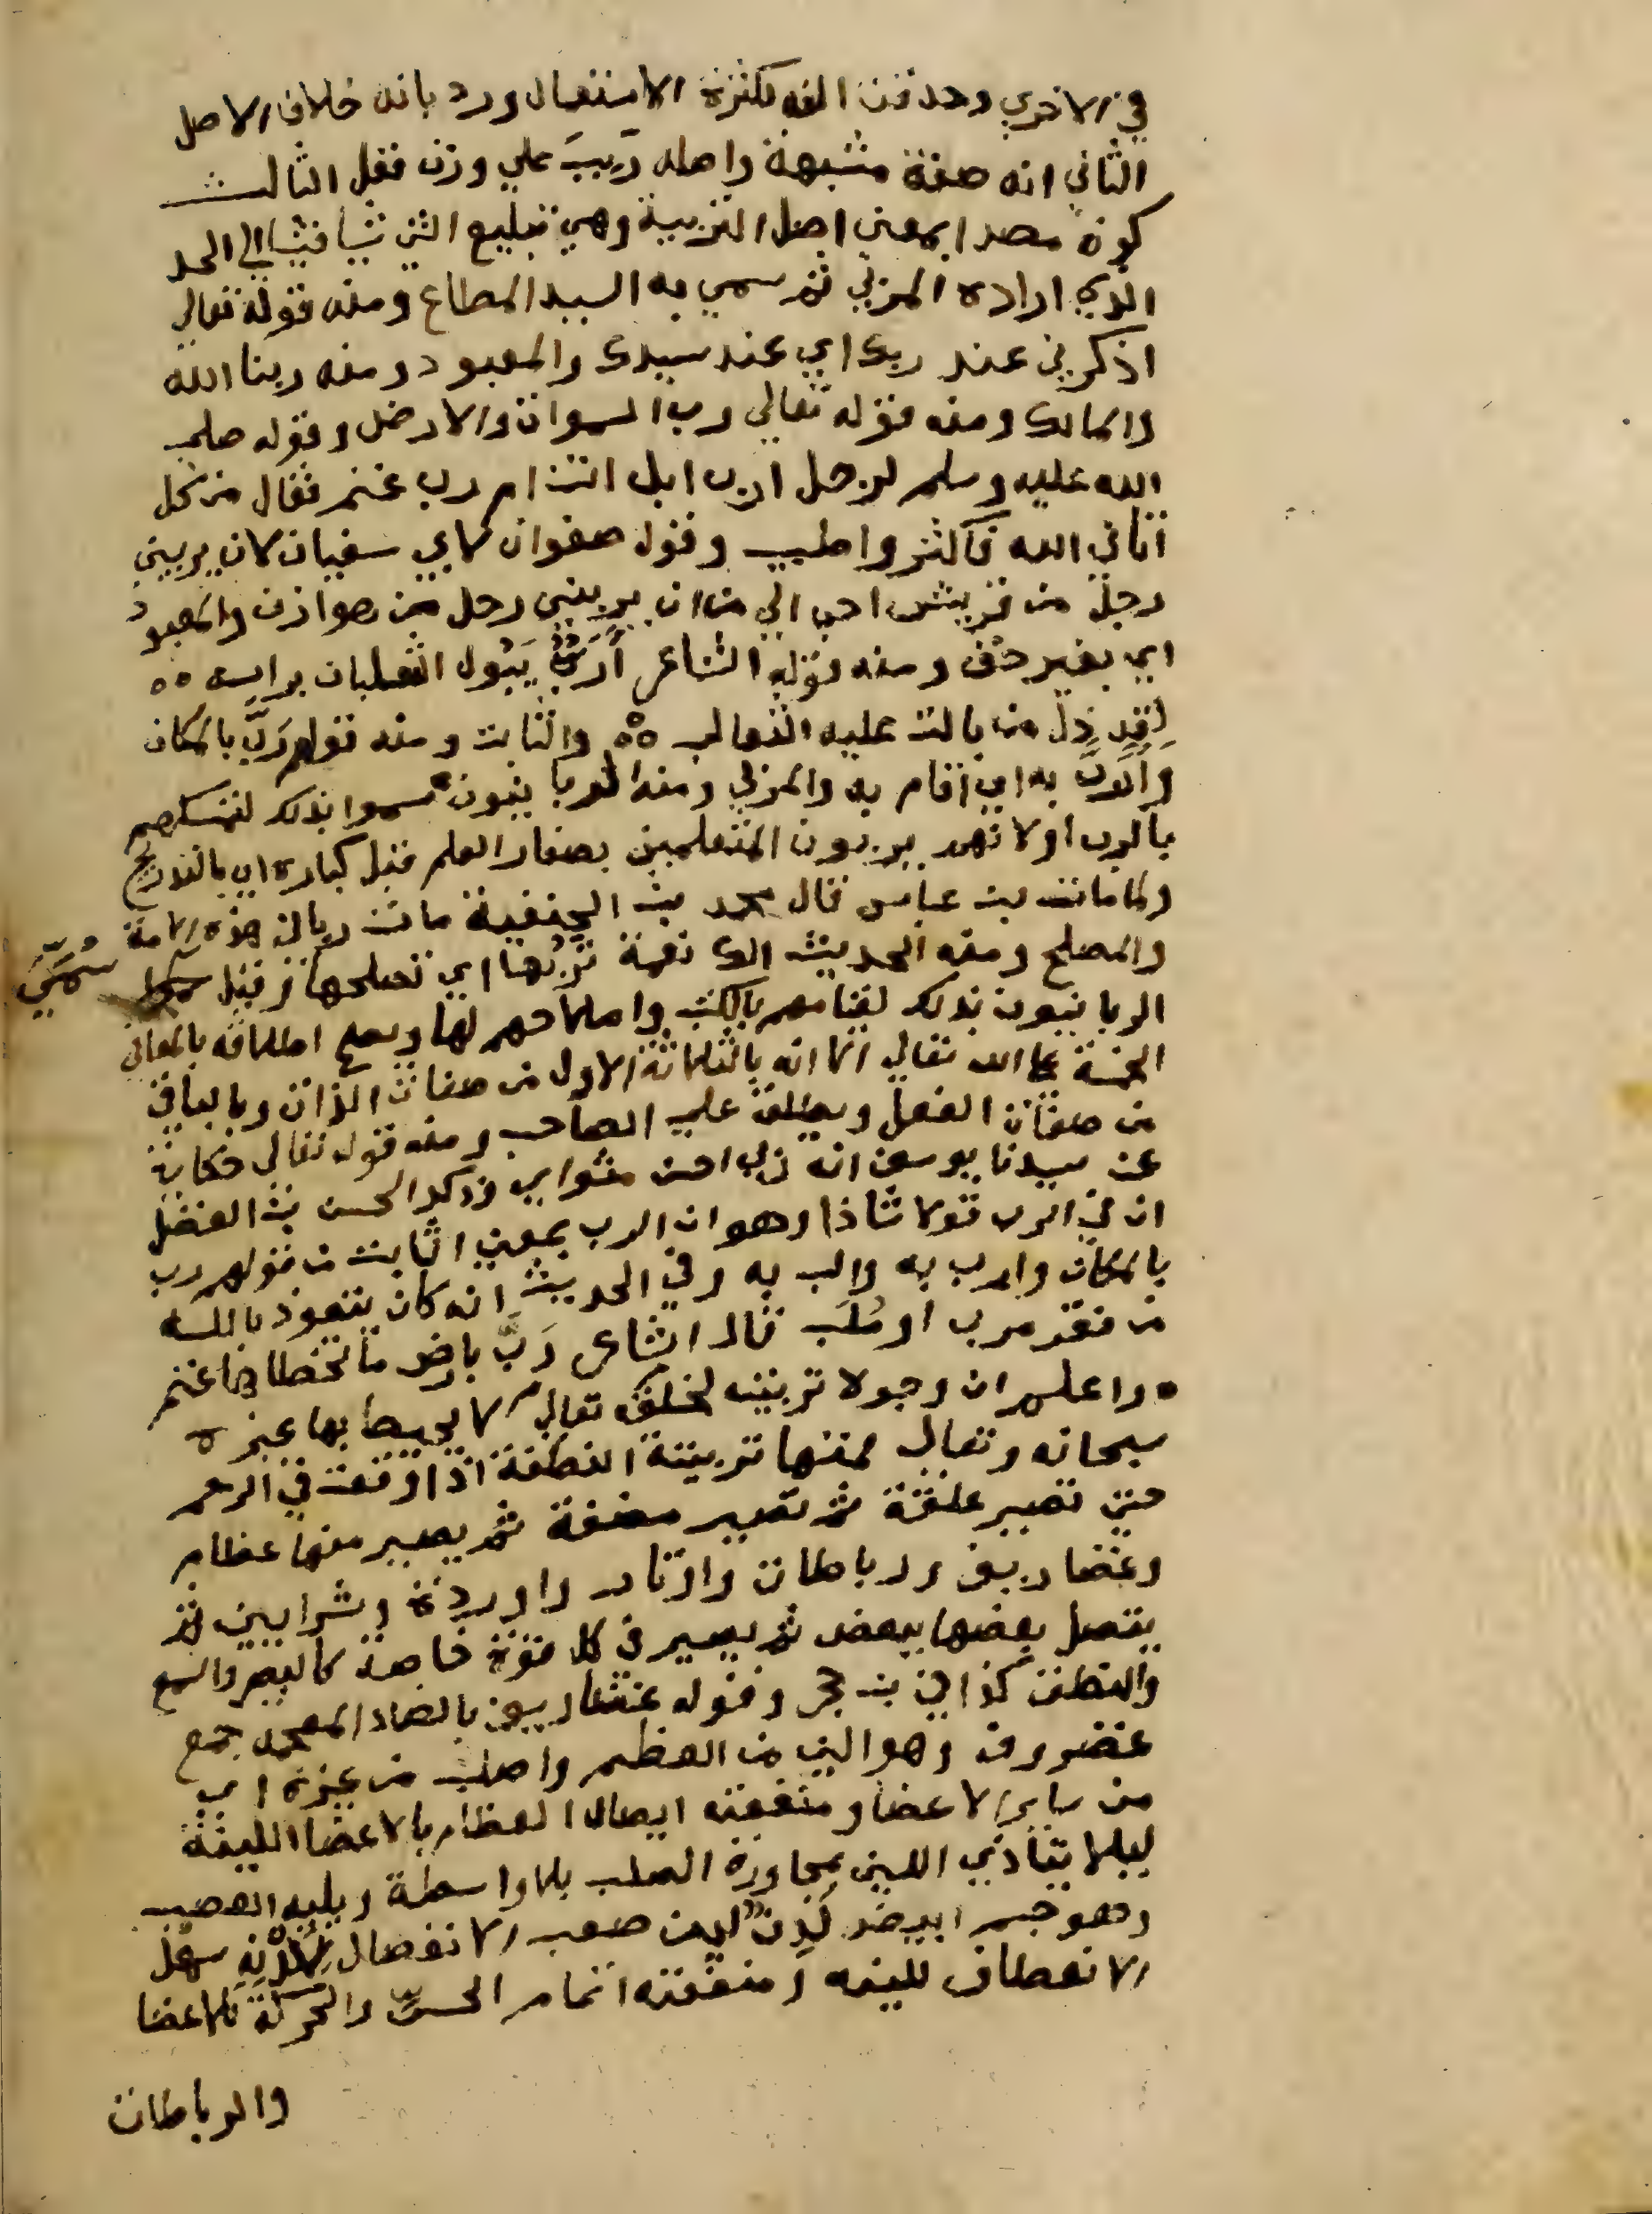 في الاخري وحذفت الفه لكثرة الاستعمال ورد بانه خلاف الاصل
الثاني انه صفة مشبهة واصله رَبِبَ علي وزن فعل الثالث
كونه مصدرا بمعني اصل التربية وهي تبليغ الشي شيا فشيا الي الحد
الذي اراده المربي ثم سمي به السيد المطاع ومنه قوله تعالي
اذكرني عند ربك اي عند سيدك والمعبود ومنه ربنا الله
والمالك ومنه قوله تعالي رب السموات والارض وقوله صلي
الله عليه وسلم لرجل ارب ابل انت ام رب غنم فقال من كل
اتاني الله فاكثر واطيب وقول صفوان لابي سفيان لان يربيني
رجل من قريش احب الي من ان يربيني رجل من هوازن والمعبود
اي بغير حق ومنه قوله الشاعر أَرَبٌّ يَبُول الثعلبان براسه ٥٥
لقد ذل من بالت عليه الثعالب ٥٥ والثابت ومنه قولهم رَبَّ بالمكان
وأَرَبَّ به اي اقام به والمربي ومنه الربانيون سموا بذلك لتمسكهم
بالرب او لانهم يربون المتعلمين بصغار العلم قبل كباره اي بالتدريج
ولما مات بن عباس قال محمد بن الحنفية مات رباني هذه الامة
والمصلح ومنه الحديث الك نعمة تَرُبُّها اي تصلحها وقيل سُمِّيَ
الربانيون بذلك لقيامهم بالكتب واصلاحهم لها ويصح اطلاقه بالمعاني
الخمسة علي الله تعالي الا انه بالثلاثة الاول من صفات الذات وبالباقي
من صفات الفعل ويطلق علي الصاحب ومنه قوله تعالي حكاية
عن سيدنا يوسف انه ربي احسن مثواي وذكر الحسن بن الفضل
ان في الرب قولا شاذا وهو ان الرب بمعني الثابت من قولهم رب
بالمكان وارب به والب به وفي الحديث انه كان يتعوذ بالله
من فقر مرب او مُلَب قال الشاعر رَبَّ بارض ما تخطاها غنم
• واعلم ان وجوه تربيته لخلقه تعالي لا يحيط بها غيره
سبحانه وتعالي فمنها تربيته النطفة اذا وقعت في الرحم
حتي تصير علقة ثم تصير مضغة ثم يصير منها عظام
وغضاريف ورباطات واوتار واوردة وشرايين ثم
يتصل بعضها ببعض ثم يصير في كل قوة خاصة كالبصر والسمع
والنطق كذا في بن حجر وقوله غضاريف بالضاد المعجمه جمع
غضروف وهو الين من العظم واصلب من غيره اي
من ساير الاعضا ومنفعته ايصال العظام بالاعضا اللينة
ليلا يتاذي اللين بمجاورة الصلب بلا واسطة ويليه العصب
وهو جسم ابيض لَدِنٌ لين صعب الانفصال لِلُدْنِهِ سهل
الانعطاف للينه ومنفعته اتمام الحس والحركة للاعضا
والرباطات